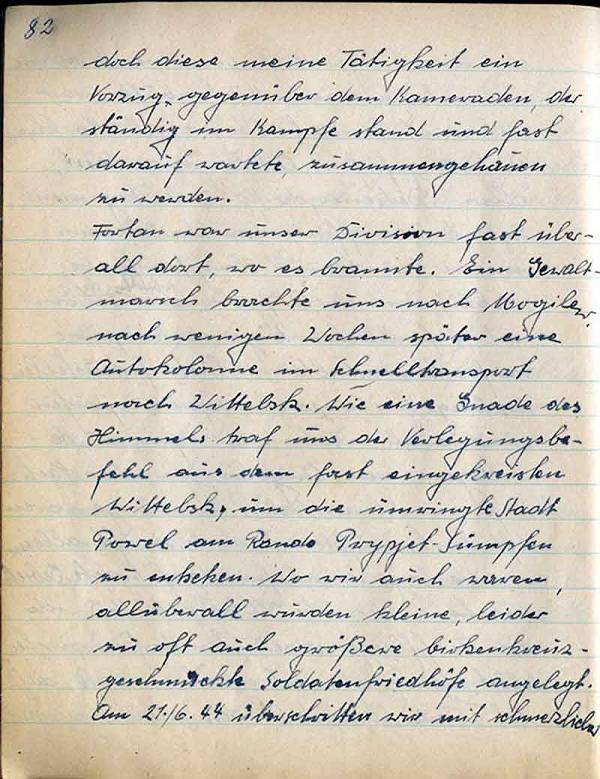 82
doch diese meine Tätigkeit ein
Vorzug, gegenüber dem Kameraden, der
ständig im Kampfe stand und fast
darauf wartete, zusammengehauen
zu werden.
Fortan war unser Division fast über-
all dort, wo es brannte. Ein Gewalt-
marsch brachte uns nach Mogilew,
nach wenigen Wochen später eine
Autokolonne im Schnelltransport
nach Wittebsk. Wie eine Gnade des
Himmels traf uns der Verlegungsbe-
fehl aus dem fast eingekreisten
Wittebsk, um die umringte Stadt
Powel am Rande Prypjet-Sümpfen
zu entsetzen. Wo wir auch waren,
allüberall wurden kleine, leider
zu oft auch größere birkenkreuz-
geschmückte Soldatenfriedhöfe angelegt.
Am 21./6. 44 überschritten wir mit schmerzlicher